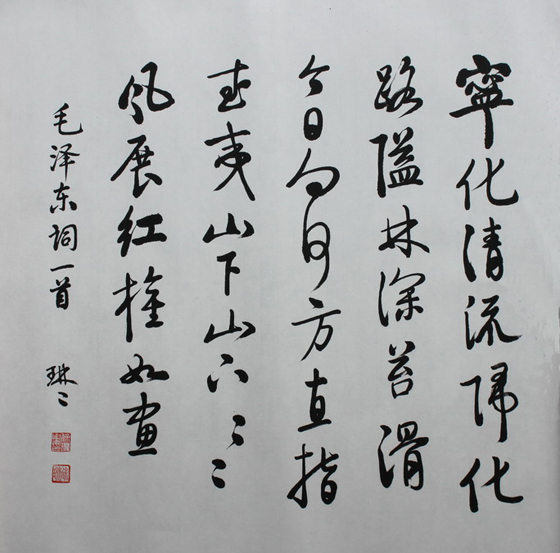 寧化清流帰化
路隘林深苔滑
今日向何方直指
武夷山下山下〻〻
风展红旗如画
毛泽东词一首 琳〻